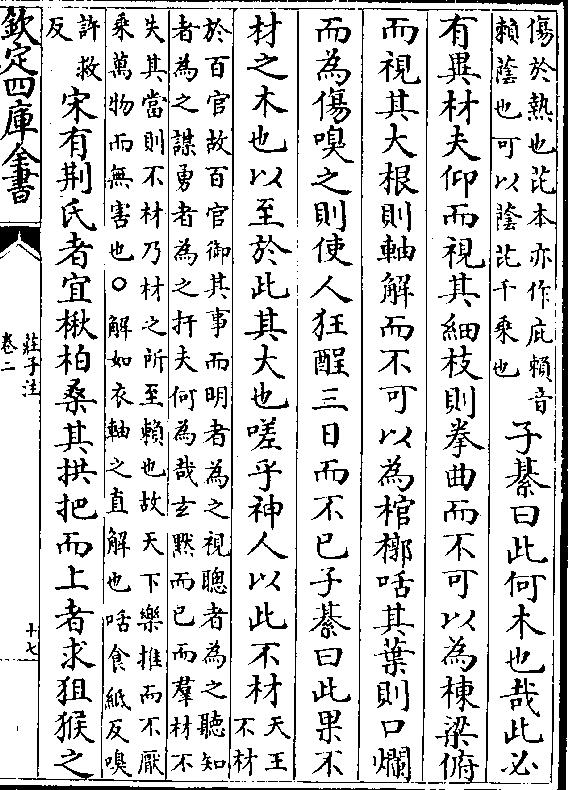 傷於熱也芘本亦作庇賴音
賴蔭也可以蔭芘千乘也
子綦曰此何木也哉此必
有異材夫仰而視其細枝則拳曲而不可以為棟梁俯
而視其大根則軸解而不可以為棺槨咶其葉則口爛
而為傷嗅之則使人狂酲三日而不已子綦曰此果不
材之木也以至於此其大也嗟乎神人以此不材
天王
不材
於百官故百官御其事而明者為之視聰者為之聽知
者為之謀勇者為之扞夫何為哉玄黙而已而羣材不
失其當則不材乃材之所至賴也故天下樂推而不厭
乘萬物而無害也○解如衣軸之直解也咶食紙反嗅
許救
反
宋有荆氏者宜楸柏桑其拱把而上者求狙猴之
欽定四庫全書
莊子注
卷二
十七